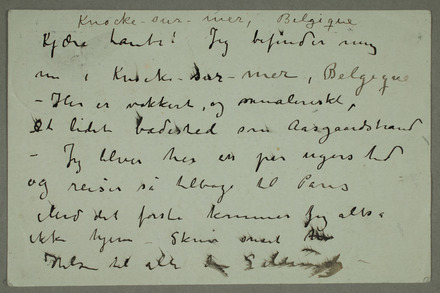 Knocke-sur-mer, Belgique
Kjære tante! Jeg befinder mig
nu i Knocke-sur-mer, Belgique
– Her er vakkert, og malerisk,
et lidet badested som Aasgaardstrand
– Jeg bliver her et par ugers tid
og reiser så tilbage til Paris
Med det første kommer jeg altså
ikke hjem – Skriv snart
Hilsen til alle